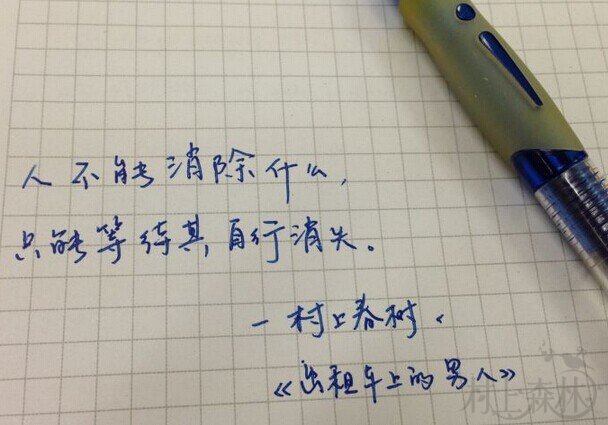 人不能消除什么，
只能等待其自行消失。
－村上春树、
《出租车上的男人》
村上森林